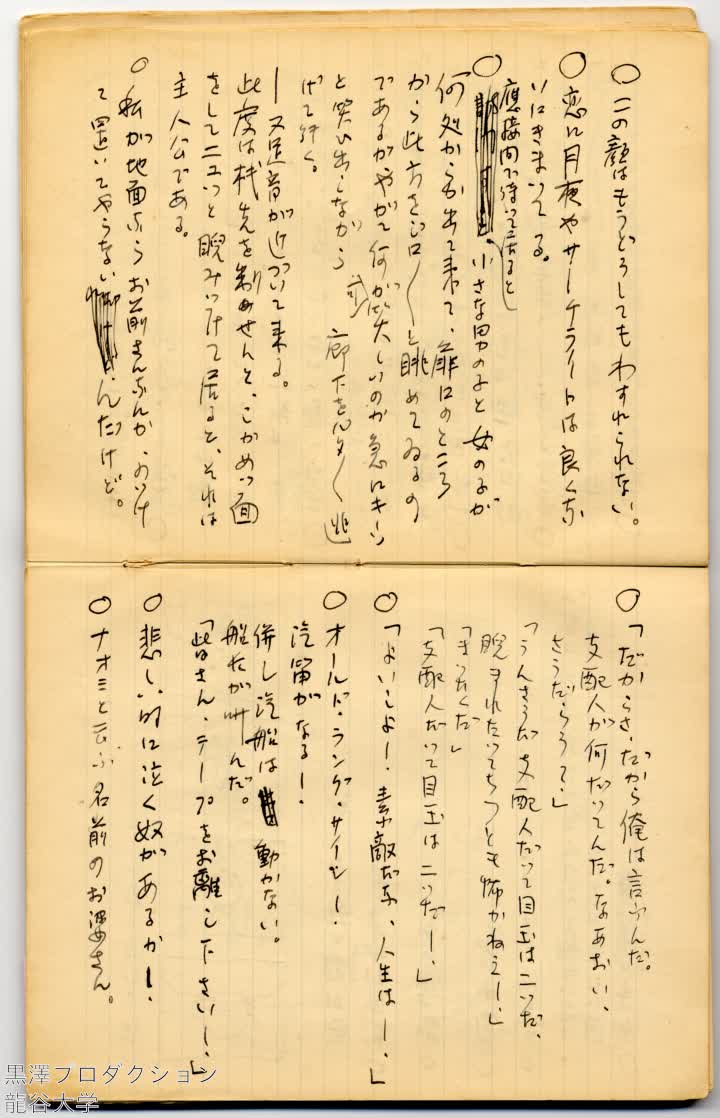 ○この顔はもうどうしてもわすれられない。
○恋に月夜やサーチライトは良くな
いにきまいてる。
應接間で待って居ると
○小さな男の子と女の子が
何処からか出て来て、扉口のところ
から此方をジロ〱と眺めてゐるの
であるがやがて何が可笑しいのか急にキーッ
と笑ひ出しながら廊下をバタ〱逃
げて行く。
―又足音が近づいて来る。
此度は機先を制めせんと、こかめつ面
をしてニューッと睨みつけて居ると、それは
主人公である。
○私が地面ならお前さんなんか、おつけ
て置いてやらないんだけど。
○「だからさ、だから俺は言ふんだ。
支配人が何だいてんだ。なあおい、
さうだらうて」
「うんさうだ支配人だって目玉は二つだ、
睨まれたいてちつとも怖かねえー」
「まつたくだ」
「支配人だって目玉は二つだー」
○「よいしよー！素敵だな、人生はー！」
○オールド・ラング・サイン！
汽笛がなるー！
併し汽船は動かない。
船長が叫んだ。
「皆さん、テープをお離し下さいー！」
○悲しい时に泣く奴があるかー！
○ナオミと云ふ名前のお婆さん。
黒澤プロダクション
龍谷大学